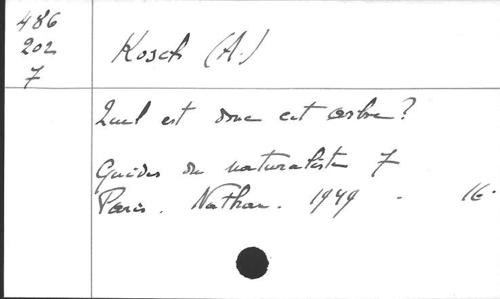 486
202
7
Kosch (A.)
Quel est donc cet arbre?
Guides du naturaliste 7
Paris. Nathan. 1949 - 16.